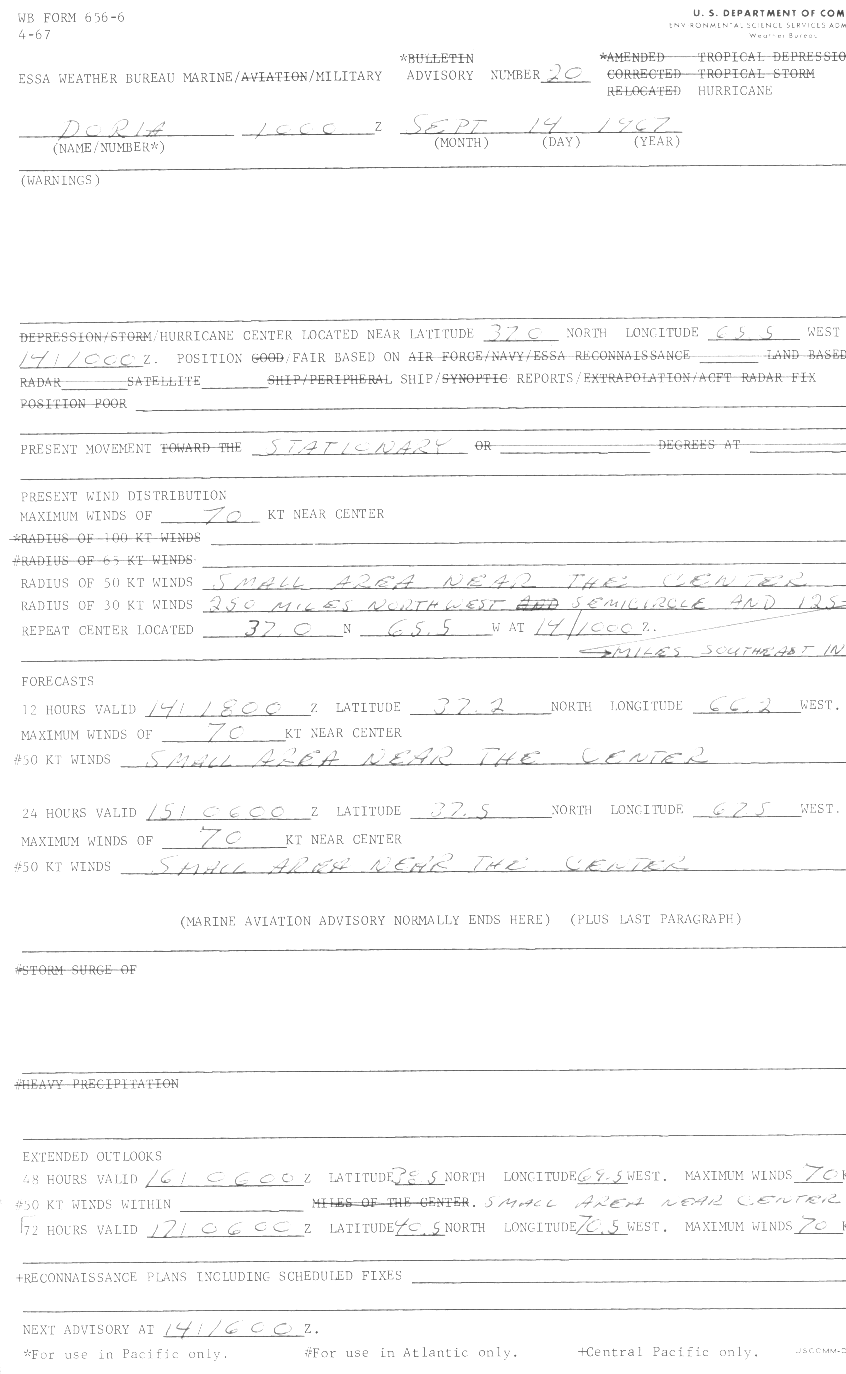 WB FORM 656-6
4-67
U. S. DEPARTMENT OF COM
ENVIRONMENTAL SCIENCE SERVICES ADM
Weather Bureau
*BULLETIN *AMENDED TROPICAL DEPRESSIO
ESSA WEATHER BUREAU MARINE/AVIATION/MILITARY ADVISORY NUMBER 20 CORRECTED TROPICAL STORM
RELOCATED HURRICANE
DORIA 1000 Z SEPT 14 1967
(NAME/NUMBER*) (MONTH) (DAY) (YEAR)
(WARNINGS)
DEPRESSION/STORM/HURRICANE CENTER LOCATED NEAR LATITUDE 37.0 NORTH LONGITUDE 65.5 WEST
14/1000 Z. POSITION GOOD/FAIR BASED ON AIR FORCE/NAVY/ESSA RECONNAISSANCE LAND BASED
RADAR SATELLITE SHIP/PERIPHERAL SHIP/SYNOPTIC REPORTS/EXTRAPOLATION/ACFT RADAR FIX
POSITION POOR
PRESENT MOVEMENT TOWARD THE STATIONARY OR DEGREES AT
PRESENT WIND DISTRIBUTION
MAXIMUM WINDS OF 70 KT NEAR CENTER
*RADIUS OF 100 KT WINDS
#RADIUS OF 65 KT WINDS
RADIUS OF 50 KT WINDS SMALL AREA NEAR THE CENTER
RADIUS OF 30 KT WINDS 250 MILES NORTHWEST AND SEMICIRCLE AND 125
REPEAT CENTER LOCATED 37.0 N 65.5 W AT 14/1000 Z.
MILES SOUTHEAST IN
FORECASTS
12 HOURS VALID 14/1800 Z LATITUDE 37.2 NORTH LONGITUDE 66.2 WEST.
MAXIMUM WINDS OF 70 KT NEAR CENTER
#50 KT WINDS SMALL AREA NEAR THE CENTER
24 HOURS VALID 15/0600 Z LATITUDE 37.5 NORTH LONGITUDE 67.5 WEST.
MAXIMUM WINDS OF 70 KT NEAR CENTER
#50 KT WINDS SMALL AREA NEAR THE CENTER
(MARINE AVIATION ADVISORY NORMALLY ENDS HERE) (PLUS LAST PARAGRAPH)
#STORM SURGE OF
#HEAVY PRECIPITATION
EXTENDED OUTLOOKS
48 HOURS VALID 16/0600 Z LATITUDE 38.5 NORTH LONGITUDE 69.5 WEST. MAXIMUM WINDS 70 K
#50 KT WINDS WITHIN MILES OF THE CENTER. SMALL AREA NEAR CENTER
72 HOURS VALID 17/0600 Z LATITUDE 40.5 NORTH LONGITUDE 70.5 WEST. MAXIMUM WINDS 70 K
+RECONNAISSANCE PLANS INCLUDING SCHEDULED FIXES
NEXT ADVISORY AT 14/1600 Z.
*For use in Pacific only. #For use in Atlantic only. +Central Pacific only. USCOMM-D